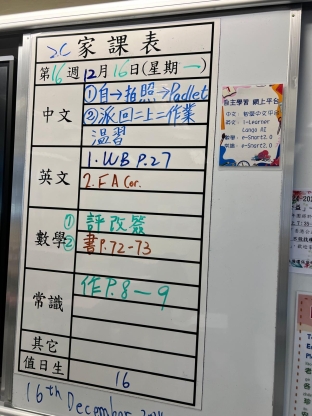 2C 家課表
第16週12月16日(星期一)
中文
①自→拍照→Padlet
②派回二上二作業
温習
英文
1. WB P.27
2. FA Cor.
數學
① 評改簽
② 書P.72-73
常識
作P.8—9
其它
值日生
16
16th December
自主學習 網上平台
中文: 智愛中文平台
英文: i-Learner
數學: e-Smart2.0
常識: e-Smart2.0